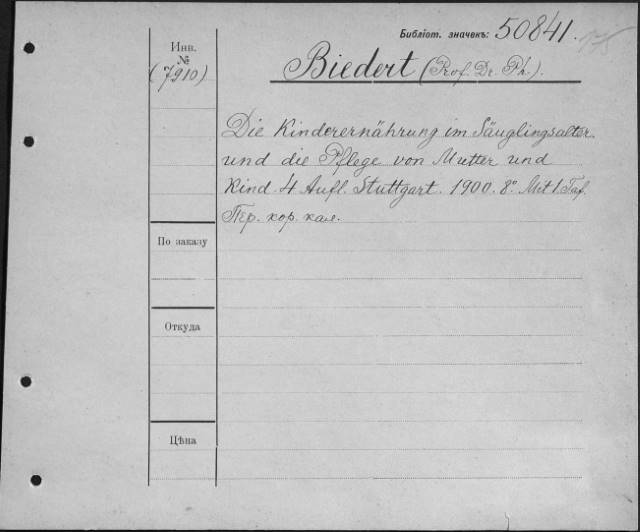 Библіот. значекъ: 50841.
Инв.
№
(7910)
Biedert (Prof. Dr. Ph.).
Die Kinderernährung im Säuglingsalter
und die Pflege von Mutter und
Kind. 4 Aufl. Stuttgart. 1900. 8º. Mit 1 Taf.
Пер. кор. кал.
По заказу
Откуда
Цѣна